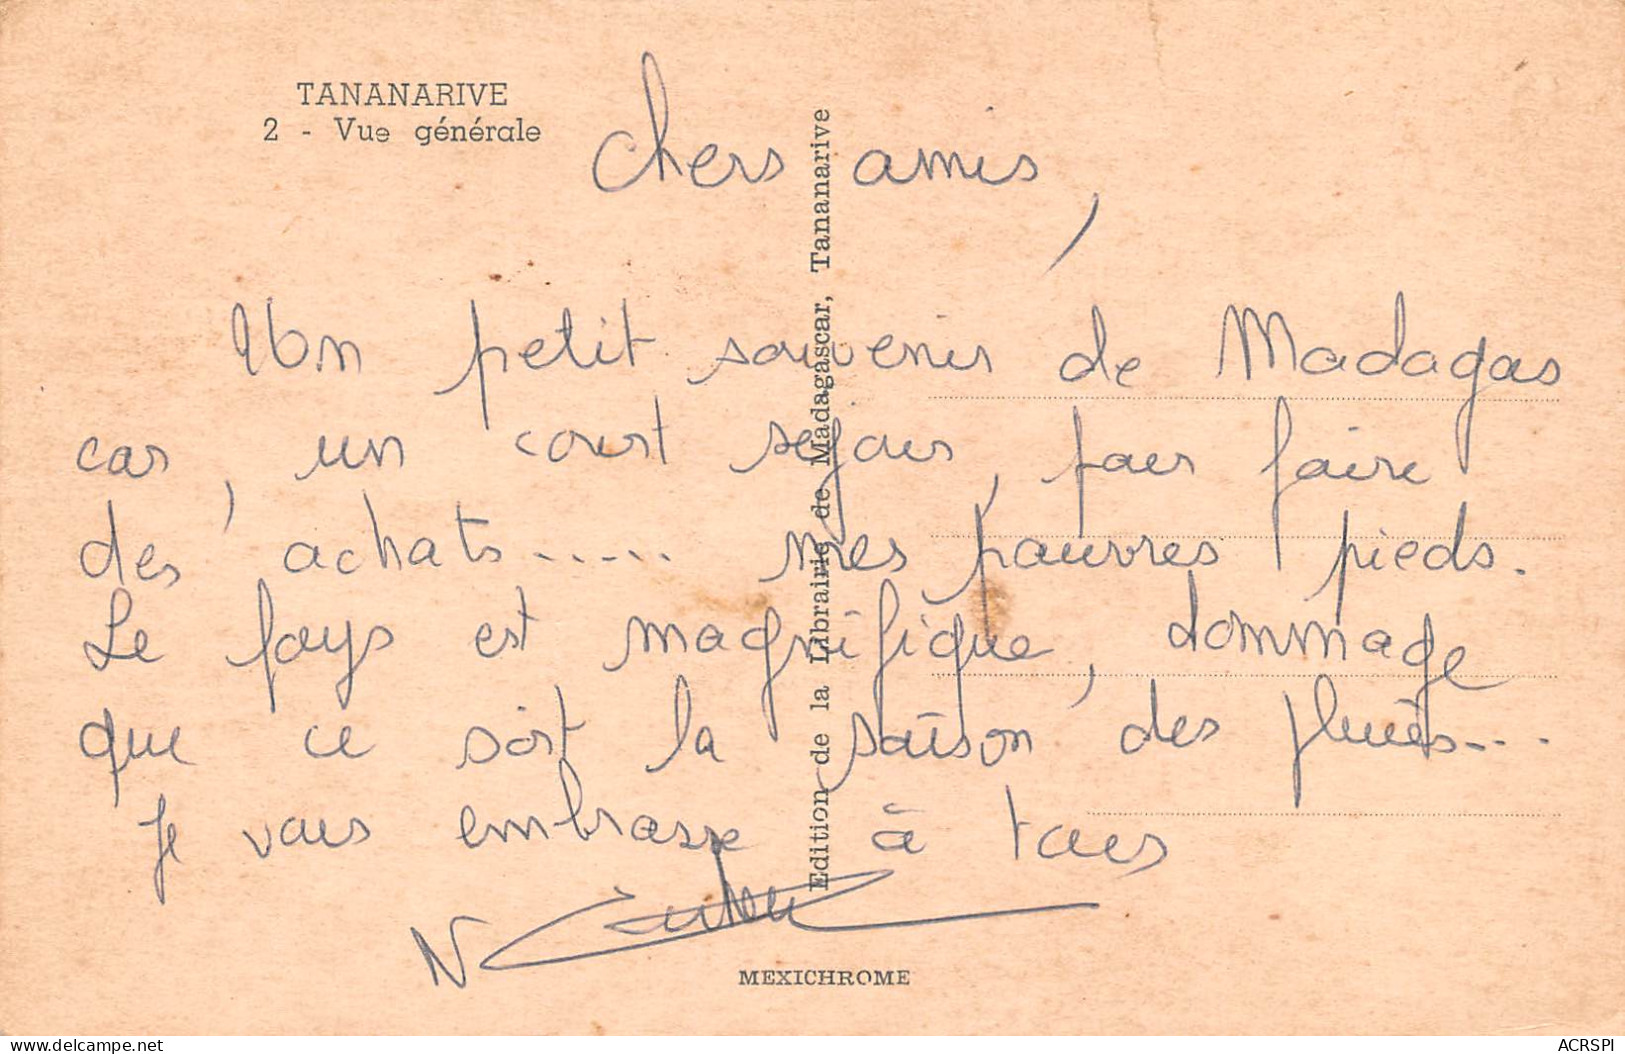 TANANARIVE
2 - Vue générale
Chers amis,
Un petit souvenir de Madagas
car, un court sejour, pour faire
des achats..... mes pauvres pieds.
Le pays est magnifique, dommage
que ce soit la saison des pluies...
Je vous embrasse à tous
N
Edition de la Librairie de Madagascar, Tananarive
MEXICHROME
ACRSPI